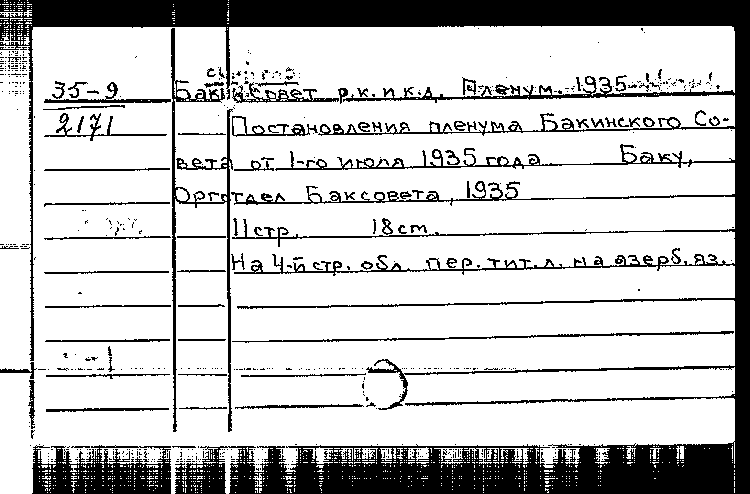 35-9 Баксовет р.к. и к.д. Пленум. 1935
2171 Постановления пленума Бакинского Со-
вета от 1-го июля 1935 года Баку,
Орготдел Баксовета, 1935
11 стр. 18 cm.
На 4-й стр. обл. пер. тит. л. на азерб. яз.